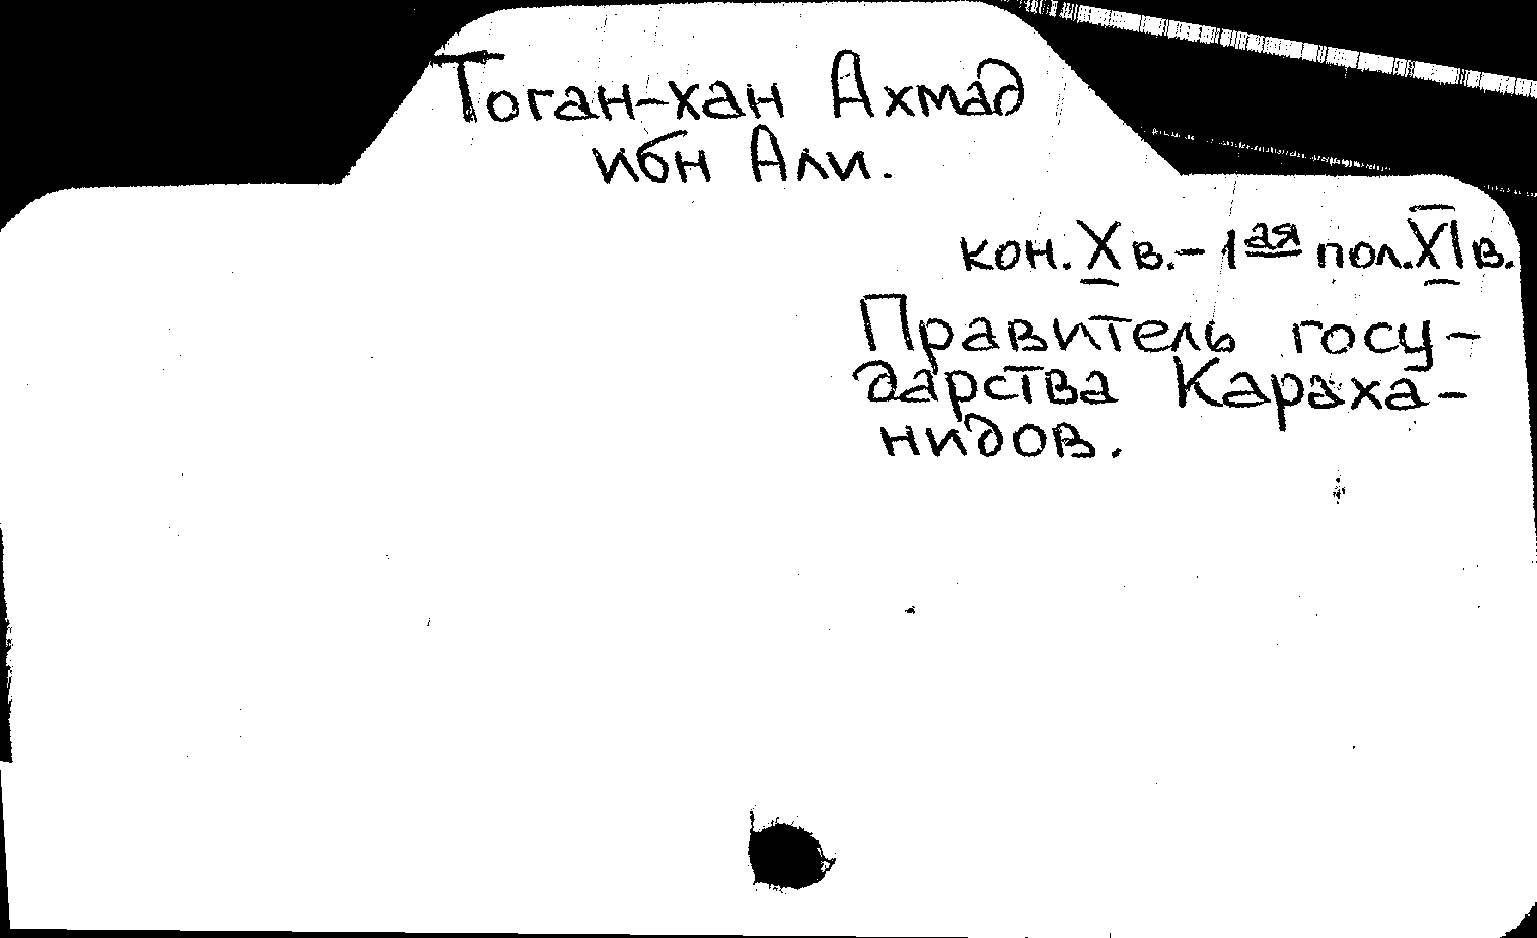 Тоган-хан Ахмад
ибн Али.
кон. X в. - 1ая пол. XI в.
Правитель госу-
дарства Караха-
нидов.